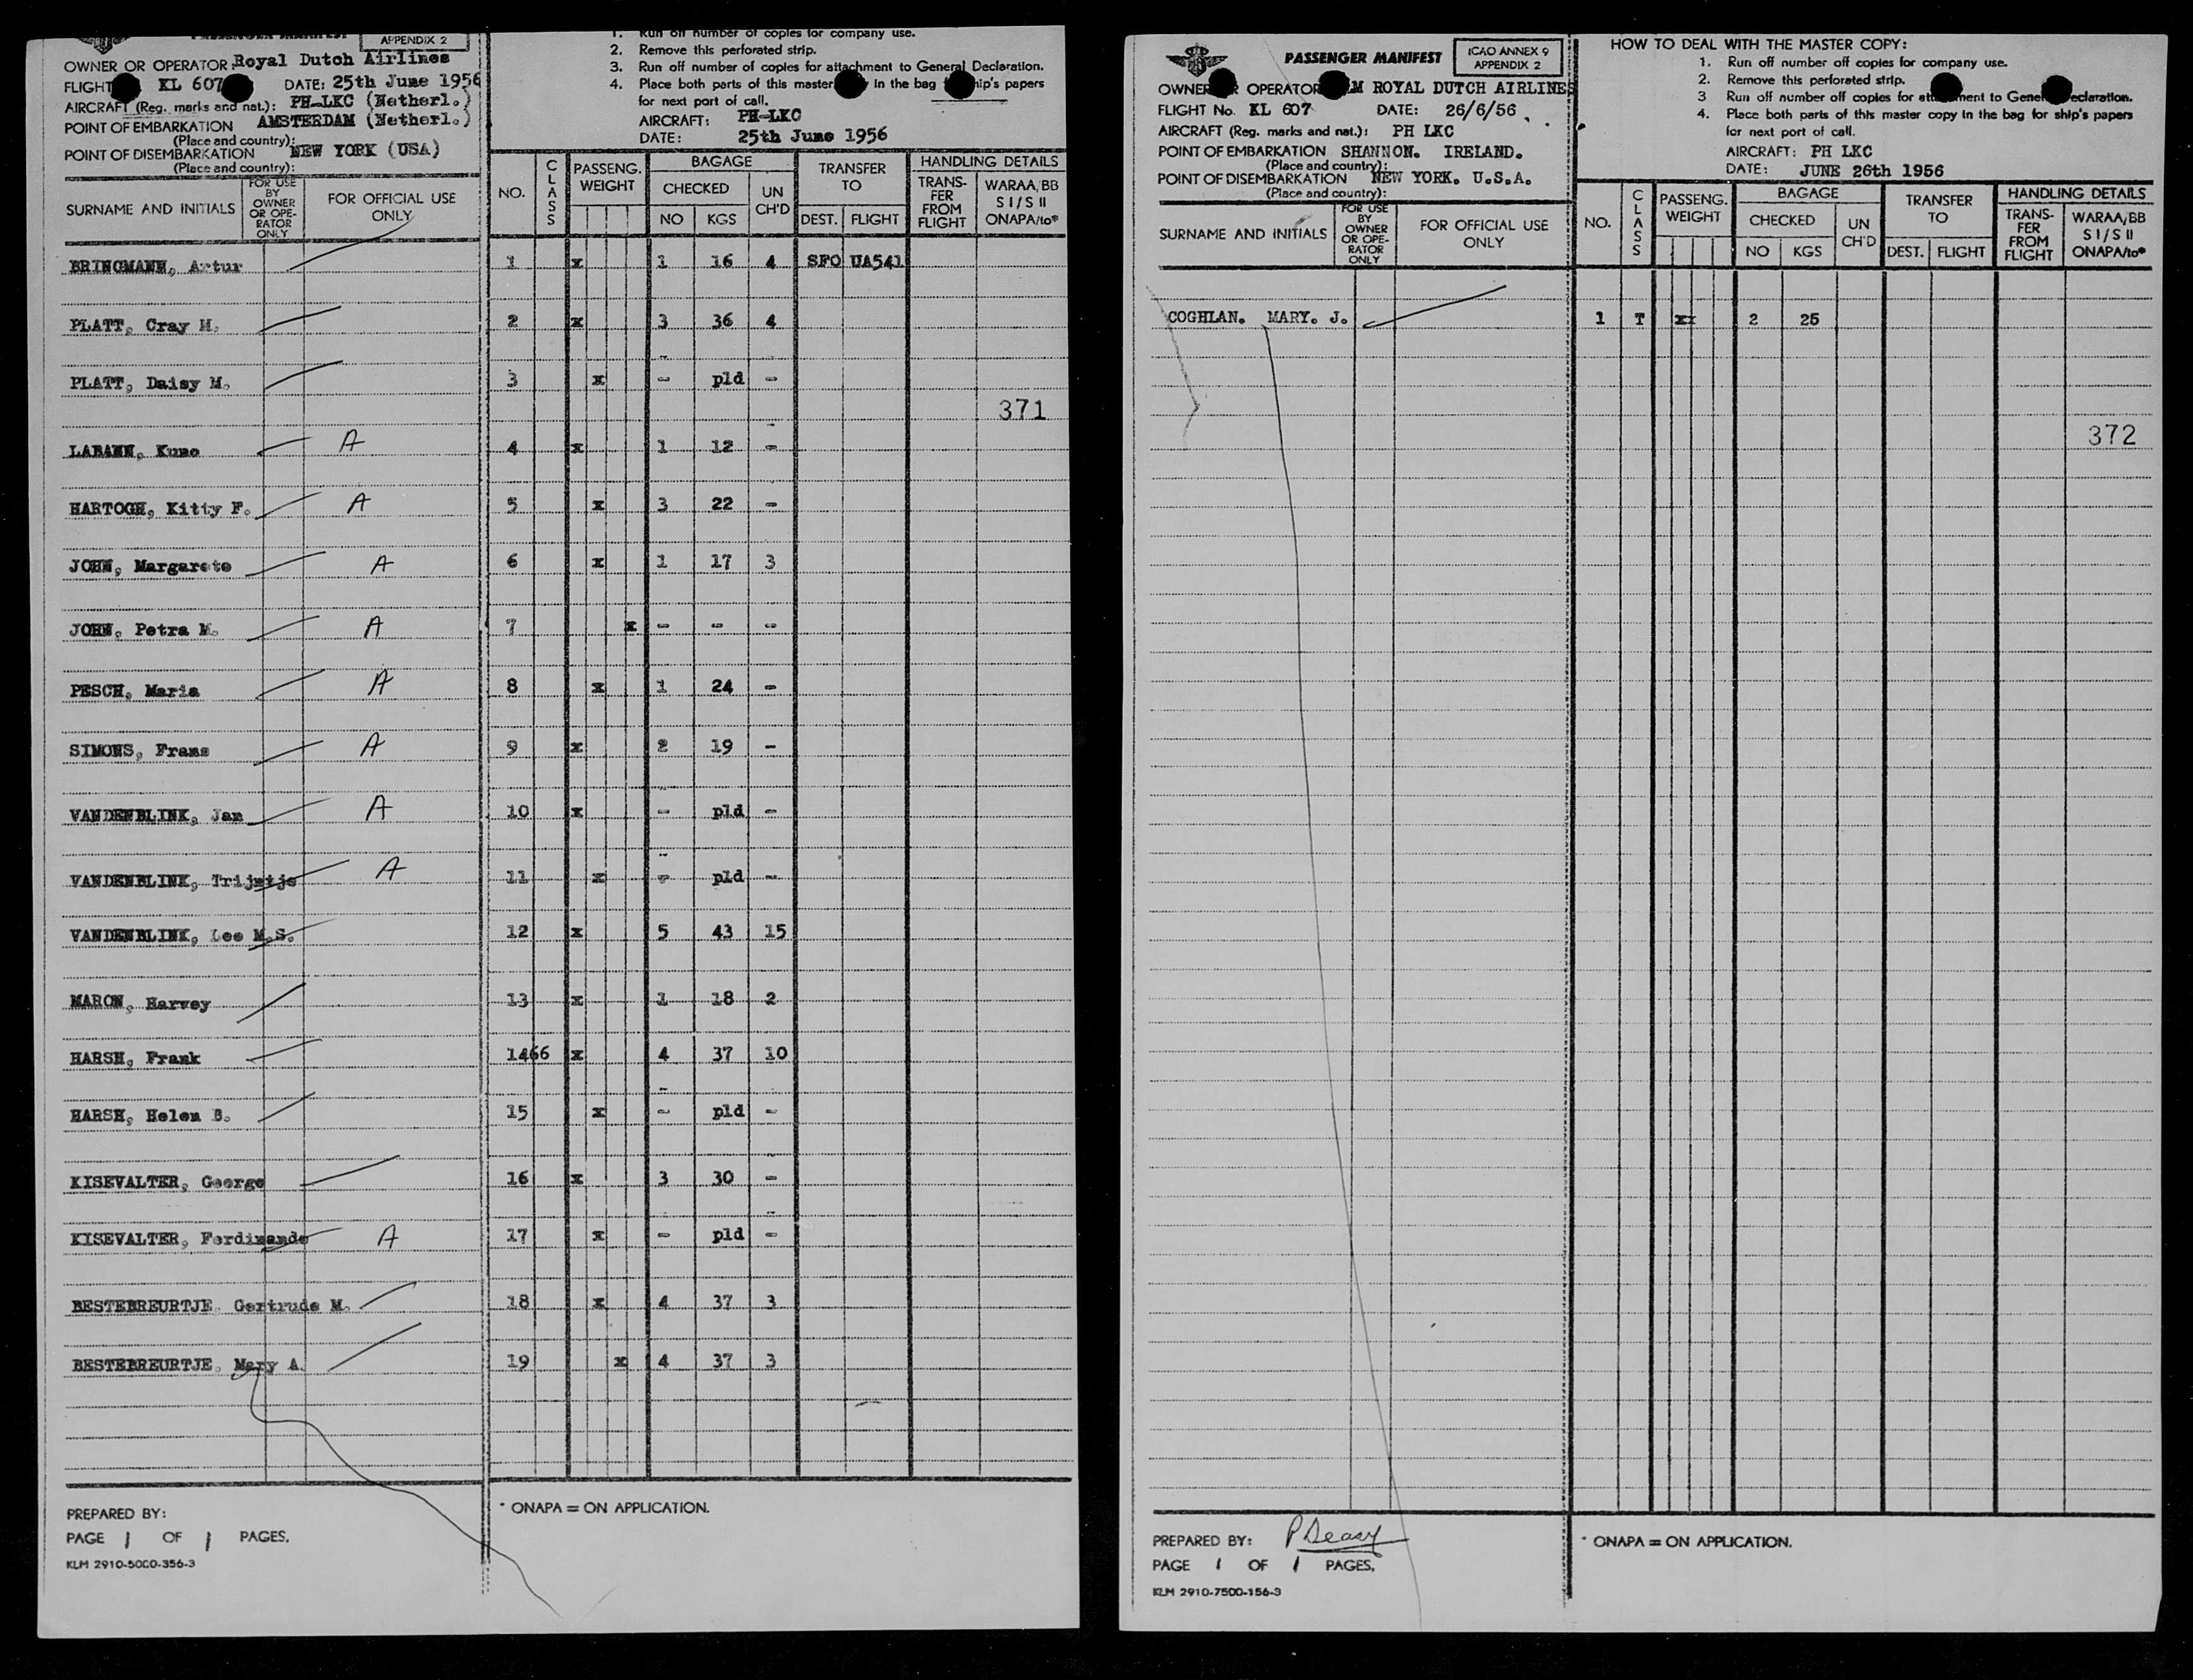 APPENDIX 2
OWNER OR OPERATOR: Royal Dutch Airlines
FLIGHT KL 607 DATE: 25th June 1956
AIRCRAFT (Reg. marks and nat.): PH-LKC (Netherl.)
POINT OF EMBARKATION AMSTERDAM (Netherl.)
(Place and country):
POINT OF DISEMBARKATION NEW YORK (USA)
(Place and country):
SURNAME AND INITIALS
FOR USE BY OWNER OR OPE-RATOR ONLY
FOR OFFICIAL USE ONLY
1. Run off number of copies for company use.
2. Remove this perforated strip.
3. Run off number of copies for attachment to General Declaration.
4. Place both parts of this master in the bag ship's papers
for next port of call.
AIRCRAFT: PH-LKC
DATE: 25th June 1956
NO.
CLASS
PASSENG. WEIGHT
BAGAGE
CHECKED
NO KGS
UN CH'D
TRANSFER TO
DEST. FLIGHT
HANDLING DETAILS
TRANS-FER FROM FLIGHT
WARAA/BB SI/SII ONAPA/to*
BRINGMANN, Artur 1 x 1 16 4 SFO UA541
PLATT, Cray M. 2 x 3 36 4
PLATT, Daisy M. 3 x - pld -
371
LABANN, Kuno A 4 x 1 12 -
HARTOGH, Kitty F. A 5 x 3 22 -
JOHN, Margarete A 6 x 1 17 3
JOHN, Petra M. A 7 x - - -
PESCH, Maria A 8 x 1 24 -
SIMONS, Frans A 9 x 2 19 -
VANDENBLINK, Jan A 10 x - pld -
VANDENBLINK, Trijntje A 11 x - pld -
VANDENBLINK, Lee M.S. 12 x 5 43 15
MARON, Harvey 13 x 1 18 2
HARSH, Frank 1466 x 4 37 10
HARSH, Helen B. 15 x - pld -
KISEVALTER, George 16 x 3 30 -
KISEVALTER, Ferdinande A 17 x - pld -
BESTEBREURTJE Gertrude M. 18 x 4 37 3
BESTEBREURTJE, Mary A. 19 x 4 37 3
PREPARED BY:
PAGE 1 OF 1 PAGES.
KLM 2910-5000-356-3
* ONAPA = ON APPLICATION.
PASSENGER MANIFEST
ICAO ANNEX 9
APPENDIX 2
OWNER OPERATOR M ROYAL DUTCH AIRLINES
FLIGHT No. KL 607 DATE: 26/6/56
AIRCRAFT (Reg. marks and nat.): PH LKC
POINT OF EMBARKATION SHANNON. IRELAND.
(Place and country):
POINT OF DISEMBARKATION NEW YORK. U.S.A.
(Place and country):
SURNAME AND INITIALS
FOR USE BY OWNER OR OPE-RATOR ONLY
FOR OFFICIAL USE ONLY
HOW TO DEAL WITH THE MASTER COPY:
1. Run off number off copies for company use.
2. Remove this perforated strip.
3 Run off number off copies for attachment to General Declaration.
4. Place both parts of this master copy in the bag for ship's papers
for next port of call.
AIRCRAFT: PH LKC
DATE: JUNE 26th 1956
NO.
CLASS
PASSENG. WEIGHT
BAGAGE
CHECKED
NO KGS
UN CH'D
TRANSFER TO
DEST. FLIGHT
HANDLING DETAILS
TRANS-FER FROM FLIGHT
WARAA/BB SI/SII ONAPA/to*
COGHLAN. MARY. J. 1 T xx 2 25
372
PREPARED BY: P Deasy
PAGE 1 OF 1 PAGES.
KLM 2910-7500-156-3
* ONAPA = ON APPLICATION.